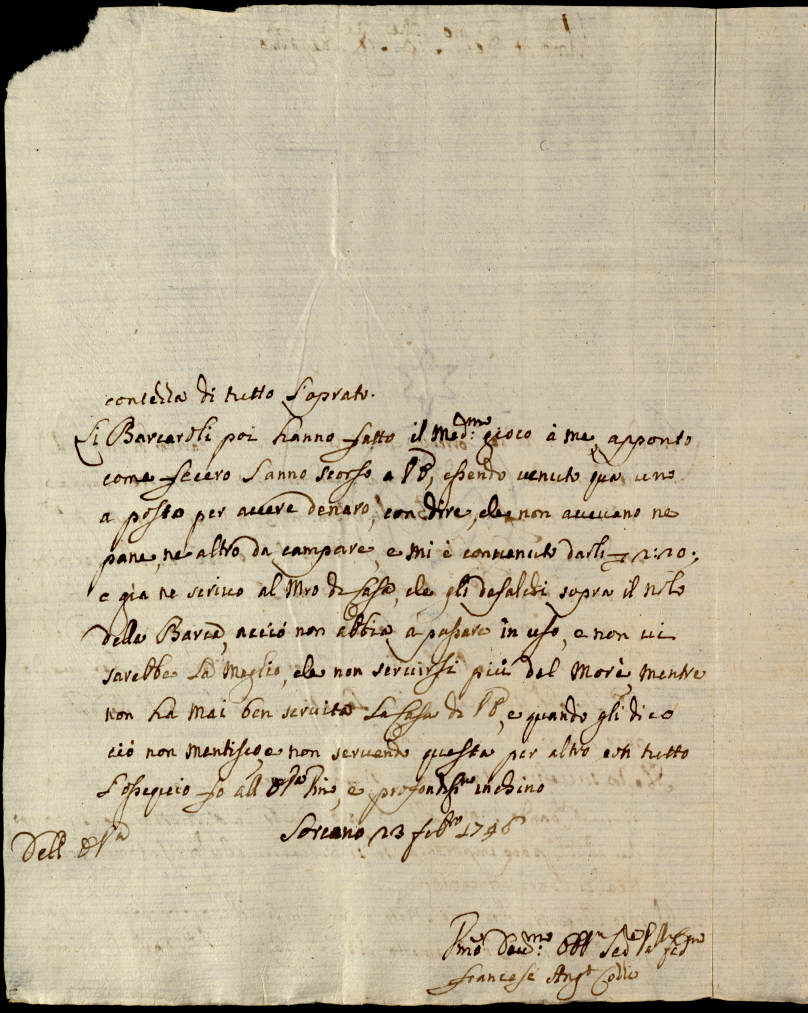 contezza di tutto l'oprato.
Li Barcaroli poi hanno fatto il med:mo gioco à me, apponto
come fecero l'anno scorso a VE, essendo venuto qua uno
a posta per avere denaro, con dire, che non avevano ne
pane, ne altro da campare, e mi è convenuto darli 2:20:
e già ne scrivo al Mro di Casa, che gli defalchi sopra il nolo
della Barca, acciò non abbia à passare in uso, e non vi
sarebbe La Meglio, che non servirsi più del Morè, mentre
non ha mai ben servita La Casa di VE, e quando gli dico
ciò non mentisco, e non servendo questa per altro con tutto
l'ossequio fo all' E Va Pmo, e profondissmo inchino
Dell' E Va Soreano 23 febro 1748
Pmo Devmo: Obb
Francesc Ango